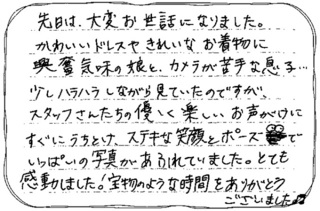 先日は、大変お世話になりました。
かわいいドレスやきれいなお着物に
興奮気味の娘と、カメラが苦手な息子…
少しハラハラしながら見ていたのですが、
スタッフさんたちの優しく楽しいお声がけに
すぐにうちとけ、ステキな笑顔とポーズで
いっぱいの写真があふれていました。とても
感動しました!宝物のような時間をありがとう
ございました